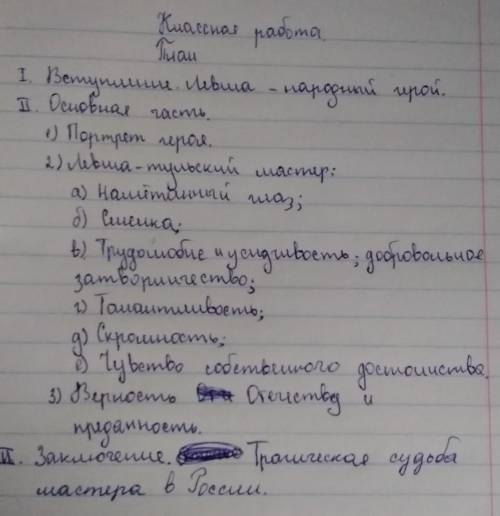 Классная работа.
План
I. Вступление. Левша - народный герой.
II. Основная часть.
1) Портрет героя.
2) Левша - тульский мастер:
а) Намётанный глаз;
б) Смекалка;
в) Трудолюбие и усидчивость; добровольное
затворничество;
г) Талантливость;
д) Скромность;
е) Чувство собственного достоинства.
3) Верность Отечеству и
преданность.
III. Заключение. Трагическая судьба
мастера в России.